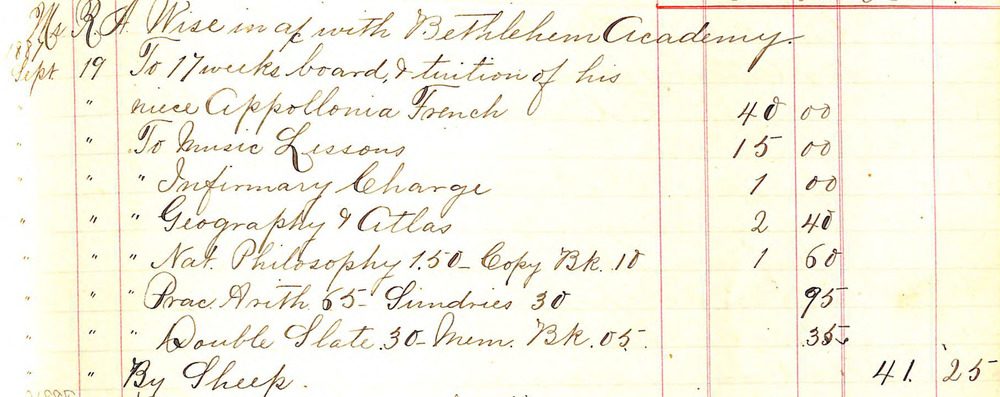 Mr. R. A. Wise in a/c with Bethlehem Academy.
Sept 19 To 17 weeks board, & tuition of his
" niece Appollonia French 40 00
" To Music Lessons 15 00
" " Infirmary Charge 1 00
" " " Geography & Atlas 2 40
" " " Nat. Philosophy 1.50 - Copy Bk. 10 1 60
" " " Prac Arith 65 - Sundries 30 95
" " " Double Slate .30 - Mem. Bk. 05. .35
" " By Sheep. 41. 25